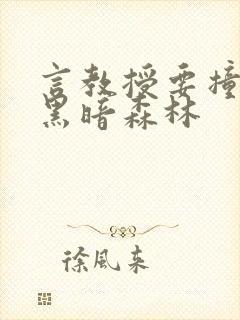 言教授要撞
黑暗森林
徐风来